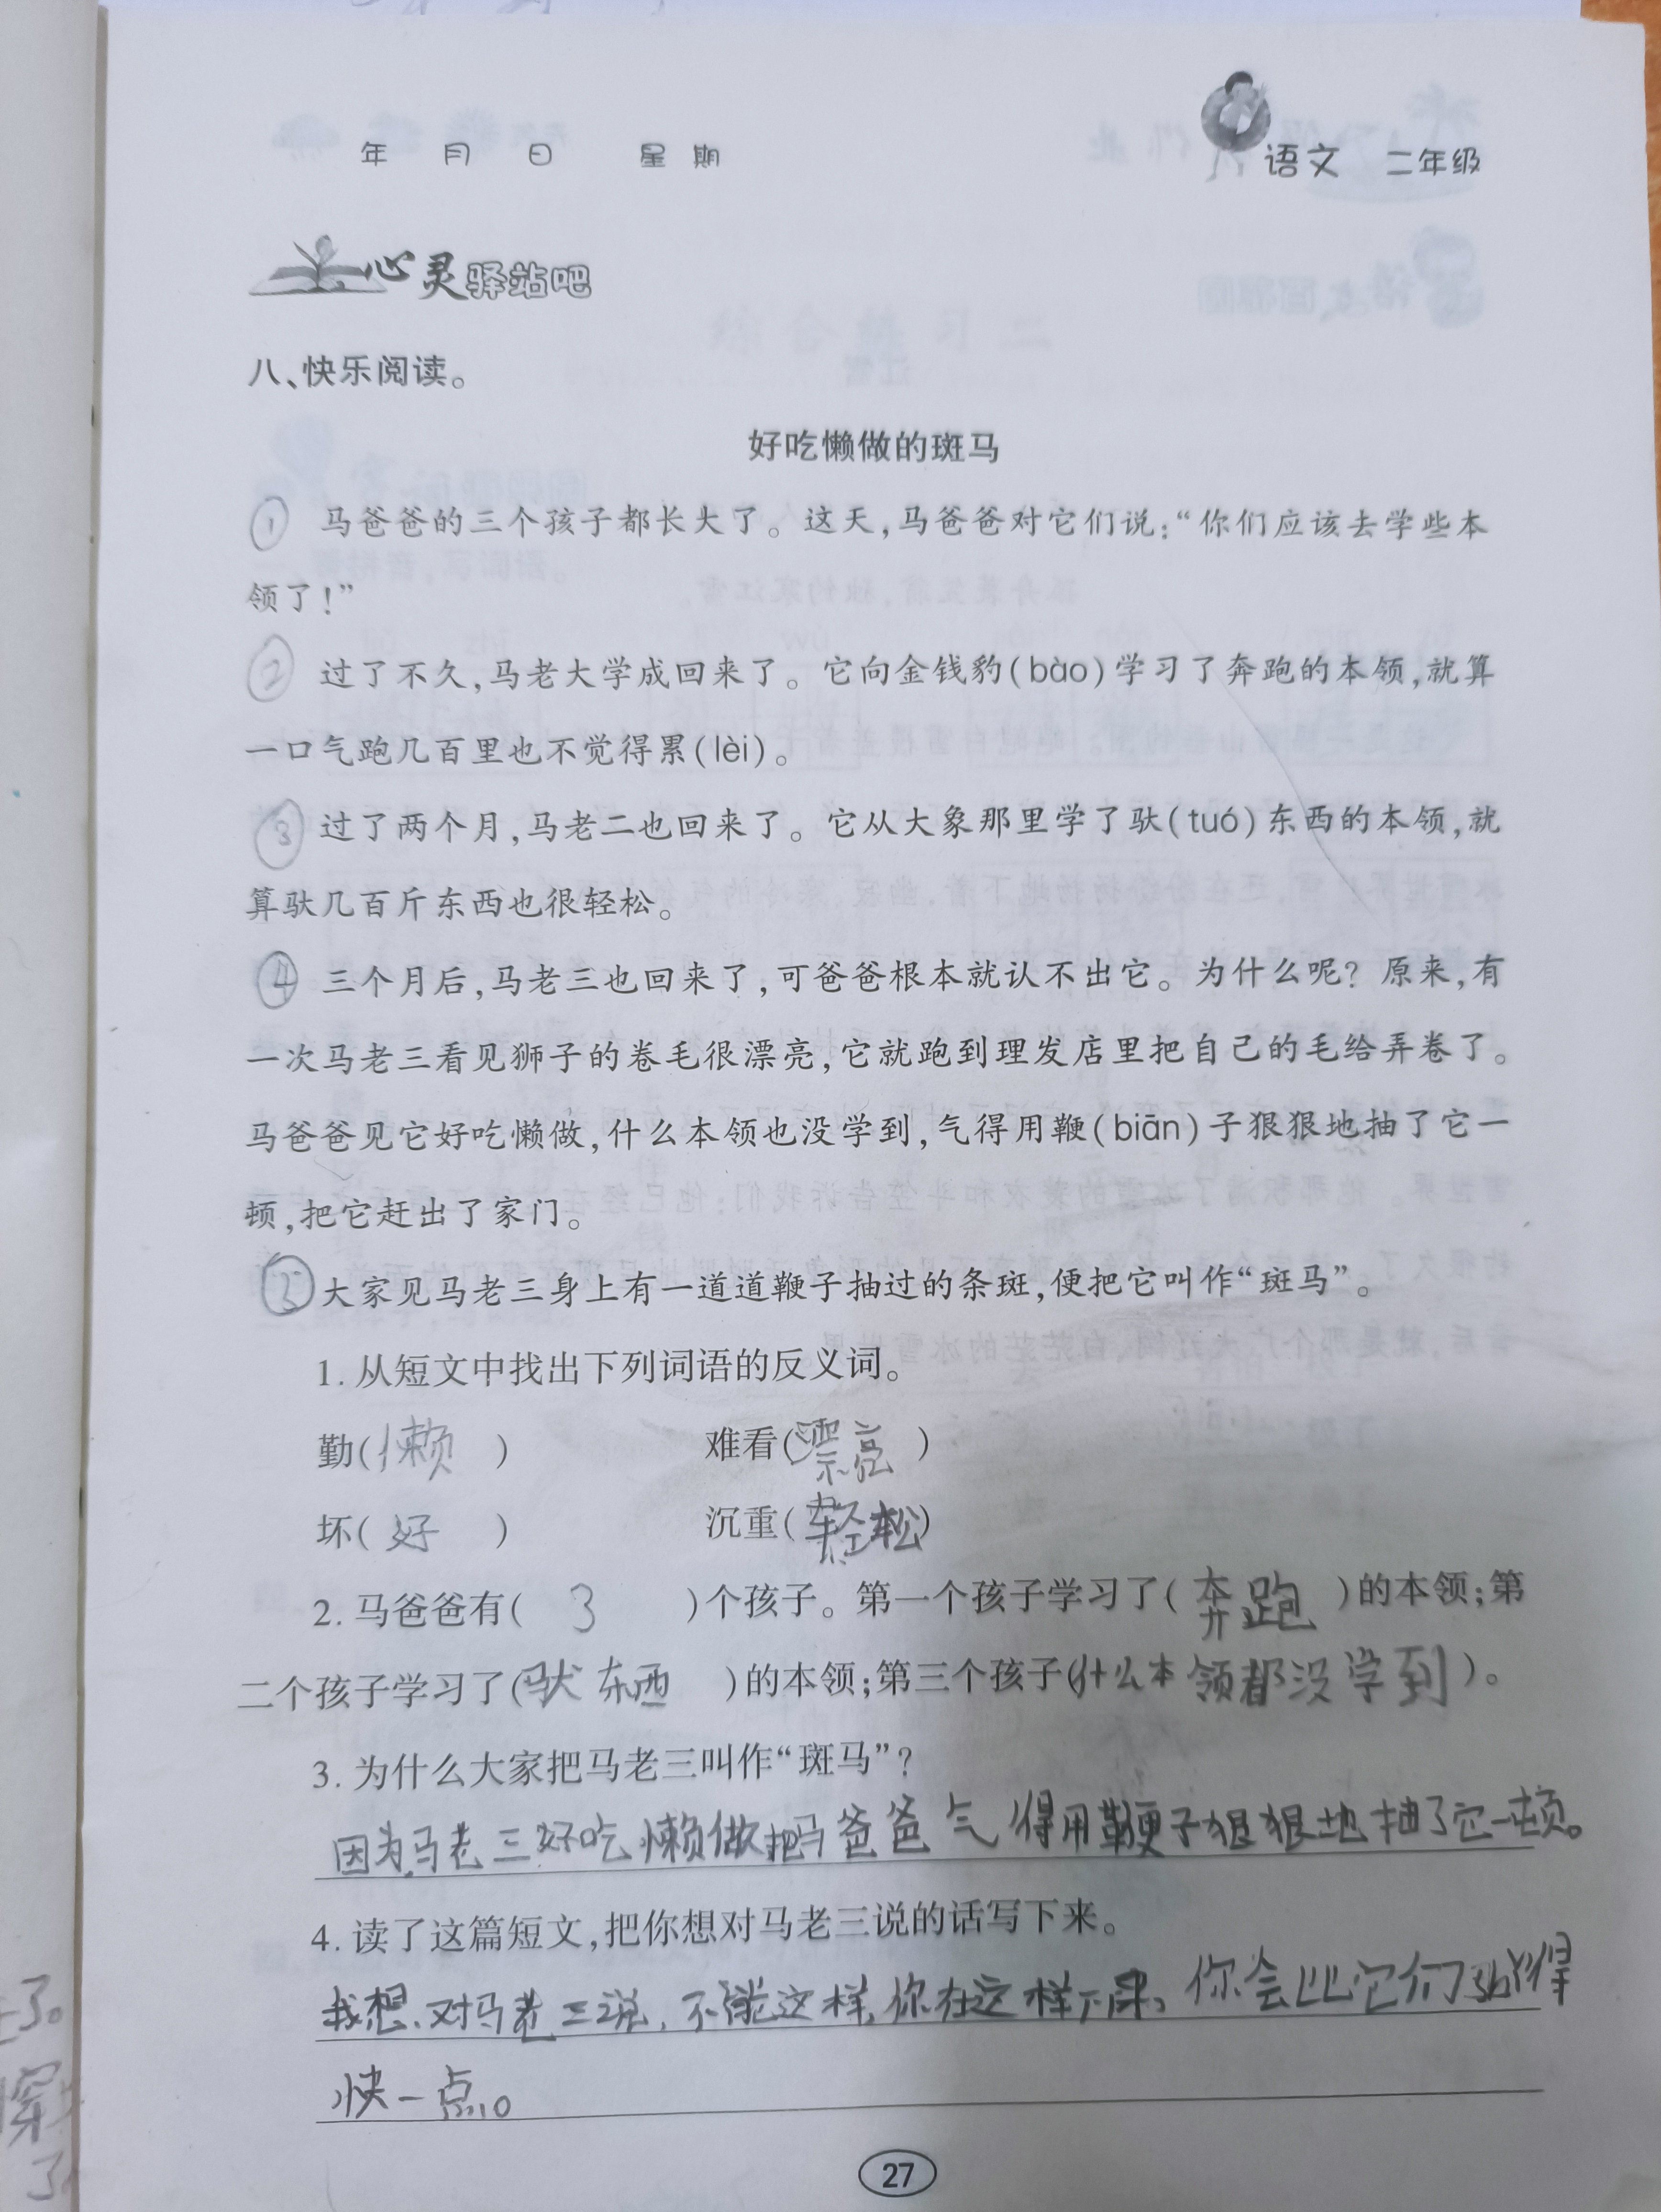 年 月 日 星期
语文 二年级
心灵驿站吧
八、快乐阅读。
好吃懒做的斑马
① 马爸爸的三个孩子都长大了。这天,马爸爸对它们说:“你们应该去学些本
领了!”
② 过了不久,马老大学成回来了。它向金钱豹(bào)学习了奔跑的本领,就算
一口气跑几百里也不觉得累(lèi)。
③ 过了两个月,马老二也回来了。它从大象那里学了驮(tuó)东西的本领,就
算驮几百斤东西也很轻松。
④ 三个月后,马老三也回来了,可爸爸根本就认不出它。为什么呢? 原来,有
一次马老三看见狮子的卷毛很漂亮,它就跑到理发店里把自己的毛给弄卷了。
马爸爸见它好吃懒做,什么本领也没学到,气得用鞭(biān)子狠狠地抽了它一
顿,把它赶出了家门。
⑤ 大家见马老三身上有一道道鞭子抽过的条斑,便把它叫作“斑马”。
1. 从短文中找出下列词语的反义词。
勤(懒) 难看(漂亮)
坏(好) 沉重(轻松)
2. 马爸爸有( 3 )个孩子。第一个孩子学习了(奔跑)的本领;第
二个孩子学习了(驮东西)的本领;第三个孩子(什么本领都没学到)。
3. 为什么大家把马老三叫作“斑马”?
因为马老三好吃懒做把马爸爸气得用鞭子狠狠地抽了它一顿。
4. 读了这篇短文,把你想对马老三说的话写下来。
我想、对马老三说,不能这样,你在这样下，你会比它们
快一点。
27
了。
穿
了